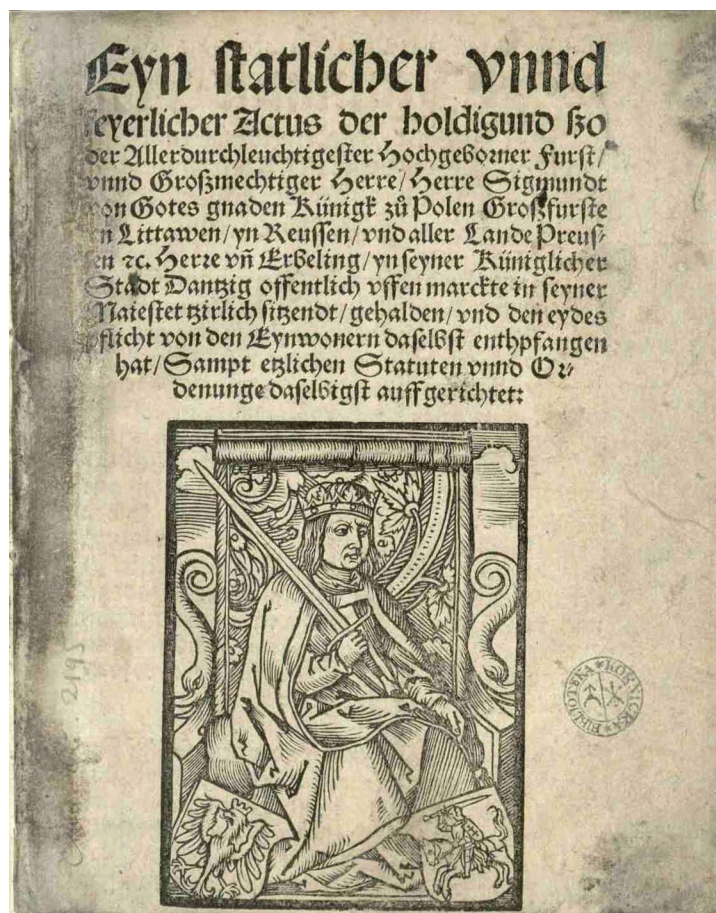 Eyn statlicher vnnd
feyerlicher Actus der holdigund szo
der Allerdurchleuchtigester Hochgeborner Furst/
vnnd Großmechtiger Herre/ Herre Sigmundt
von Gotes gnaden Künigk zů Polen Großfurste
yn Littawen/ yn Reussen/ vnd aller Lande Preus⸗
sen ⁊c. Herre vñ Erbeling/ yn seyner Küniglicher
Stadt Dantzig offentlich vffen marckte in seyner
Maiestet tzirlich sitzendt/ gehalden/ vnd den eydes
pflicht von den Eynwonern daselbst enthpfangen
hat/ Sampt etzlichen Statuten vnnd Or⸗
denunge daselbigst auffgerichtet:
BIBLIOTEKA * KÓRNICKA *
2195